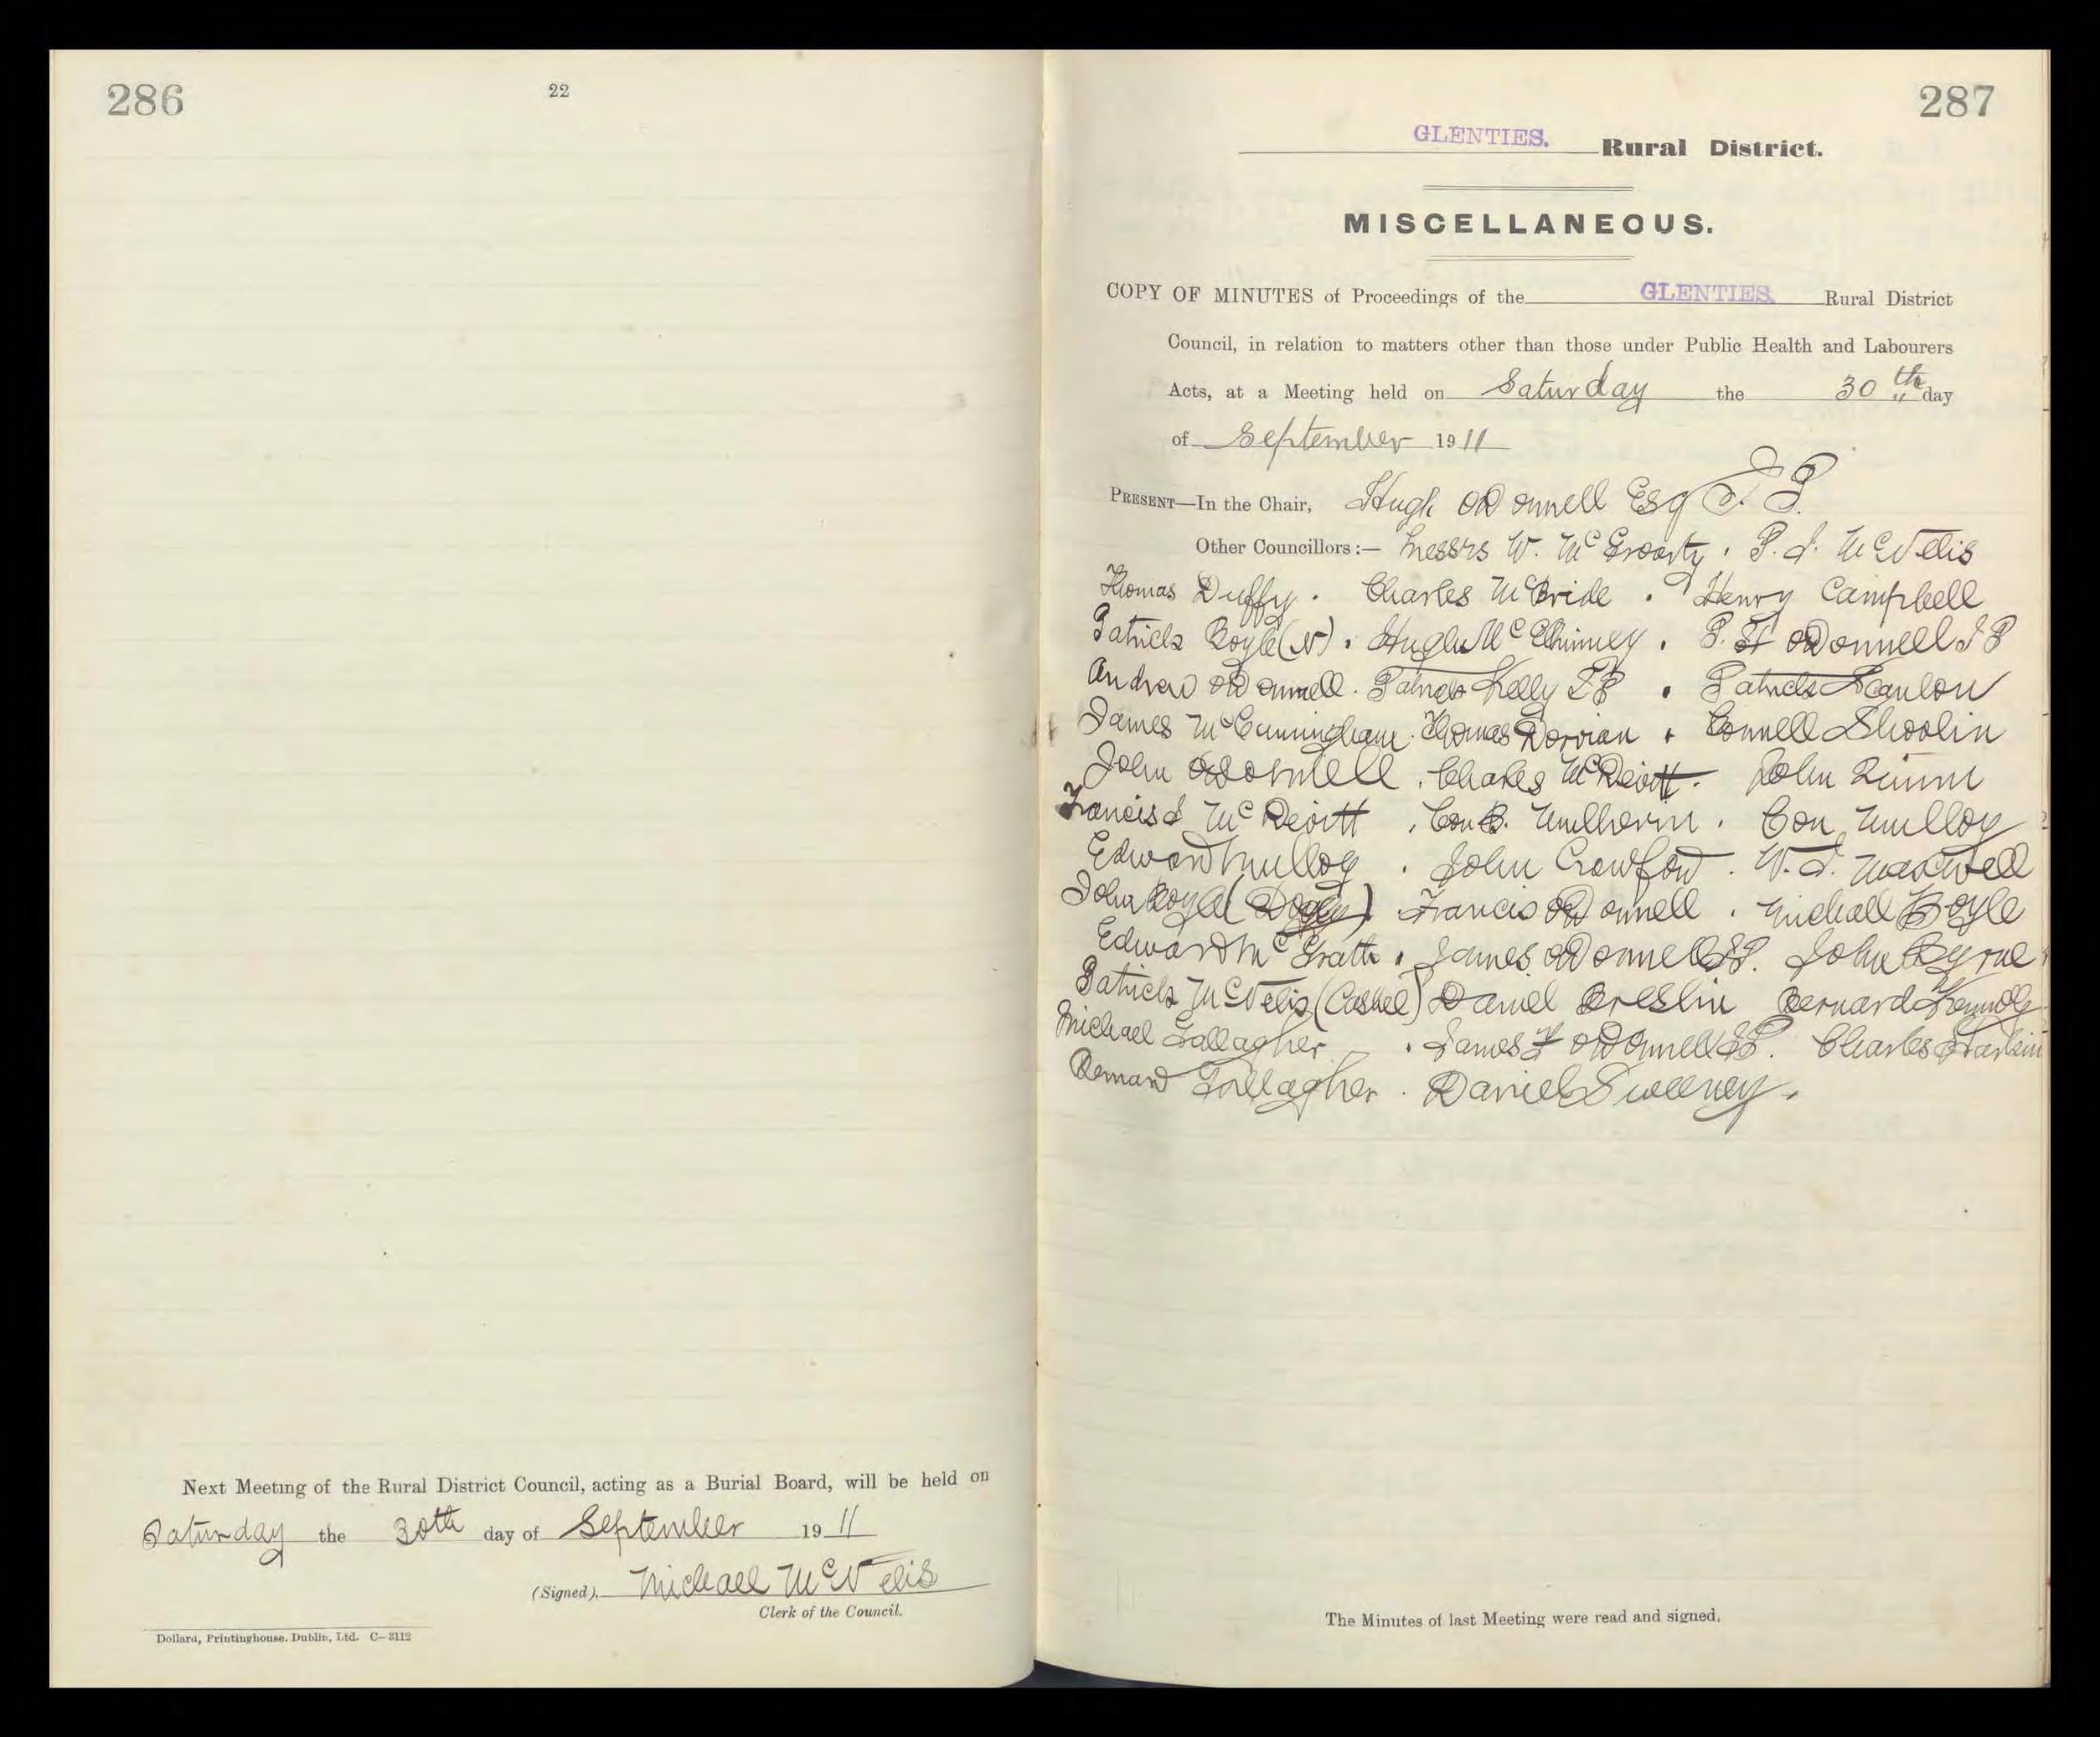 286
22
Next Meeting of the Rural District Council, acting as a Burial Board, will be held on
Saturday the 30th day of September 1911
(Signed), Michael McNelis
Clerk of the Council.
Dollard, Printinghouse, Dublin, Ltd. C—3112
287
GLENTIES. Rural District.
MISCELLANEOUS.
COPY OF MINUTES of Proceedings of the GLENTIES. Rural District
Council, in relation to matters other than those under Public Health and Labourers
Acts, at a Meeting held on Saturday the 30th day
of September 1911
PRESENT—In the Chair, Hugh O'Donnell Esq J. P.
Other Councillors:— Messrs W. McGroarty. P. J. McNelis
Thomas Duffy. Charles McBride. Henry Campbell
Patrick Boyle (N). Hugh McElhinney. P. H O'Donnell J P
Andrew O'Donnell. Patrick Kelly J P. Patrick Scanlon
James McCunningham. Thomas Dorrian. Connell Shoolin
John O'Donnell. Charles McDevitt. John Quinn
Francis J McDevitt. Con B. Mulhern. Con Mulloy
Edward Mulloy. John Crawford. W. J. Maxwell
John Boyle. Francis O'Donnell. Michael Boyle
Edward McGrath. James O'Donnell JP. John Byrne
Patrick McNelis (Cashel) Daniel Breslin Bernard
Michael Gallagher. James F O'Donnell JP. Charles Harkin
Bernard Gallagher. Daniel Sweeney.
The Minutes of last Meeting were read and signed.